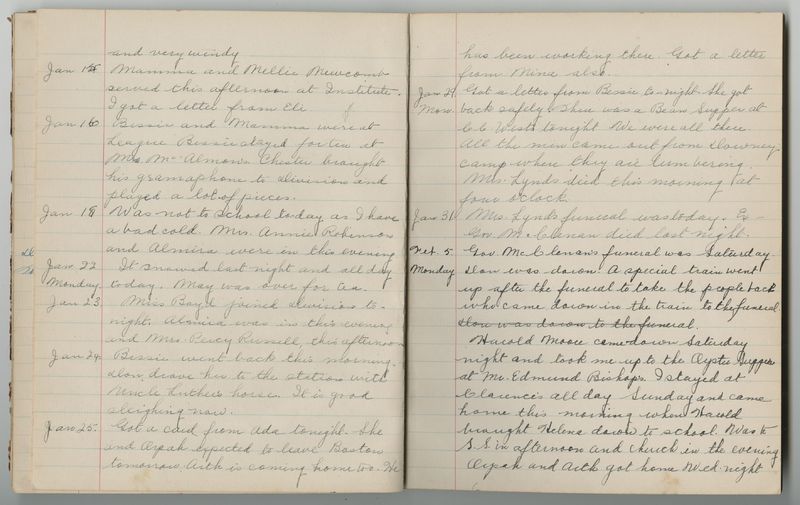 and very windy
Jan 15 Mamma and Mellie Newcomb
served this afternoon at Institute.
I got a letter from Eli
Jan 16 Bessie and Mamma were at
League Bessie stayed for tea at
Mrs. McAlmon's Chester brought
his gramaphone to Division and
played a lot of pieces.
Jan 19 Was not to school today as I have
a bad cold. Mrs. Annie Robinson
and Almira were in this evening
Jan. 22 It snowed last night and all day
Monday. today. May was over for tea.
Jan 23 Miss Boyd joined Division to-
night. Almira was in this evening
and Mrs. Percy Russell, this afternoon
Jan 24 Bessie went back this morning.
Don drove her to the station with
Uncle Luther's horse. It is good
sleighing now.
Jan 25. Got a card from Ada tonight. She
and Orpah expected to leave Boston
tomorrow. Arth is coming home too. He
has been working there. Got a letter
from Mina also.
Jan 29 Got a letter from Bessie to-night. She got
Mon. back safely. There was a Bean Supper at
C. C. West's tonight We were all there
All the men came out from Downey
camp where they are lumbering.
Mrs. Lynds died this morning at
four o'clock
Jan. 31 Mrs. Lynds funeral was today. Ex-
Gov. McClenan died last night.
Feb. 5 Gov. McClenan's funeral was Saturday
Monday Don was down. A special train went
up after the funeral to take the people back
who came down in the train to the funeral.
Don was down to the funeral.
Harold Moore came down Saturday
night and took me up to the Oyster Supper
at Mr. Edmund Bishop's. I stayed at
Clarence's all day Sunday and came
home this morning when Harold
brought Helena down to school. Was to
S.S. in afternoon and church in the evening
Orpah and Arth got home Wed. night